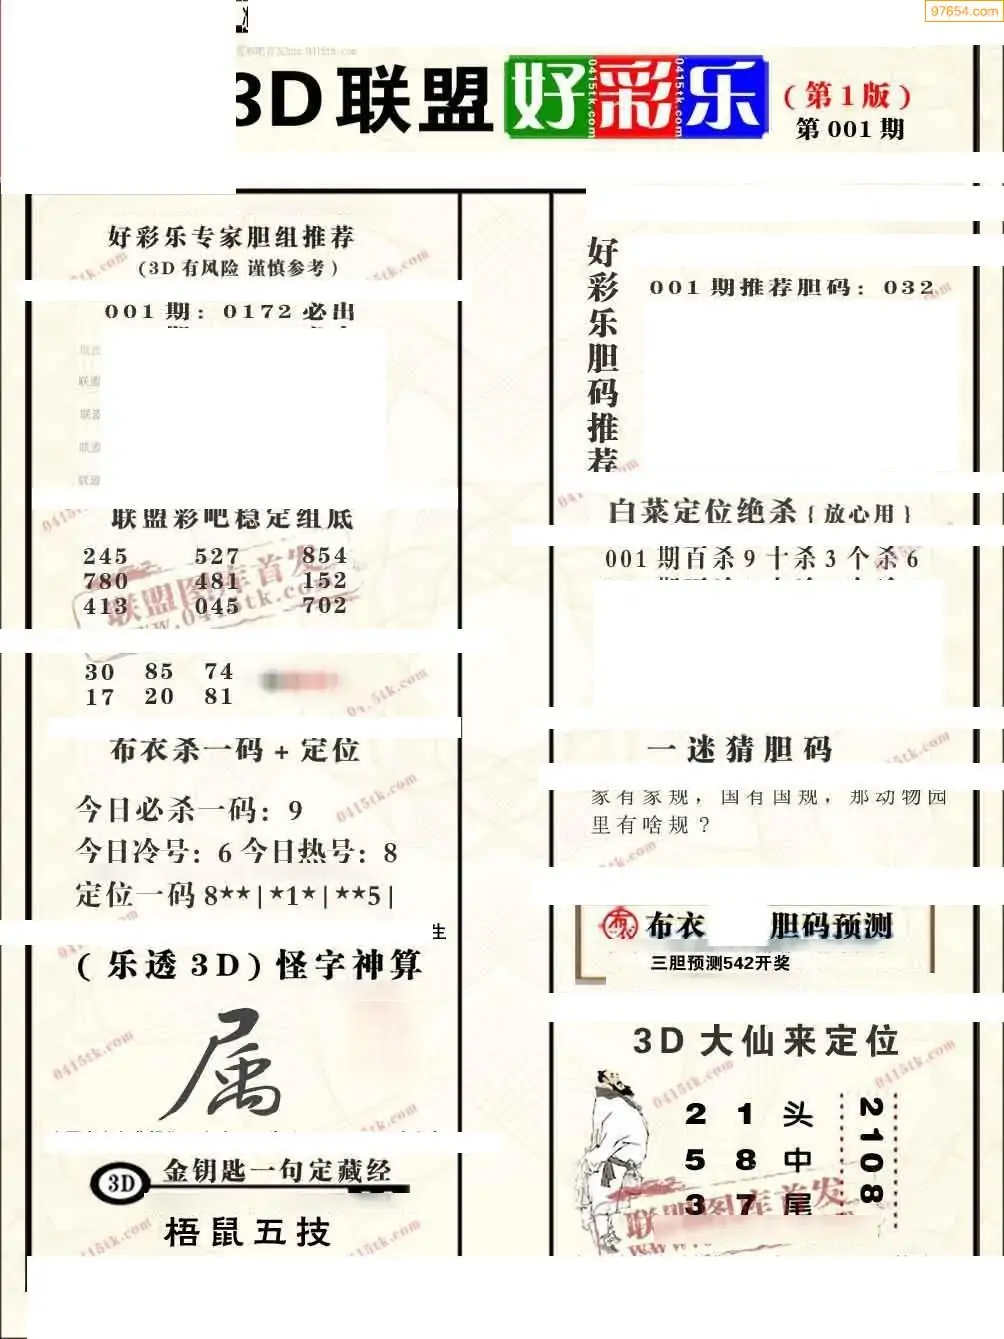 97654.com
3D联盟 好彩乐 (第1版)
0415tk.com
0415tk.com
第001期
好彩乐专家胆组推荐
(3D有风险 谨慎参考)
001期: 0172必出
联盟
联盟
联盟
联盟
联盟
联盟彩吧稳定组底
245 527 854
780 481 152
413 045 702
联盟图库首发
www.0415tk.com
30 85 74
17 20 81
布衣杀一码+定位
今日必杀一码: 9
今日冷号: 6 今日热号: 8
定位一码8**|*1*|**5|
生
(乐透3D)怪字神算
属
3D 金钥匙一句定藏经
梧鼠五技
好彩乐胆码推荐
001期推荐胆码: 032
白菜定位绝杀{放心用}
001期百杀9十杀3个杀6
一迷猜胆码
家有家规，国有国规，那动物园
里有啥规?
布衣 布衣 胆码预测
三胆预测542开奖
3D大仙来定位
2 1 头
5 8 中
3 7 尾
2108
联盟图库首发
0415tk.com